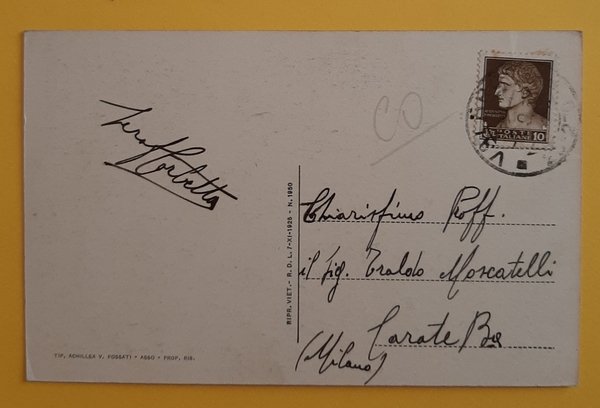 CO
POSTE
ITALIANE
10
Chiarissimo Proff.
il Sig. Eraldo Moscatelli
Carate Bza
(Milano)
RIPR. VIET. - R. D. L. 7-XI-1925 - N. 1950
TIP. ACHILLEA V. FOSSATI - ASSO - PROP. RIS.